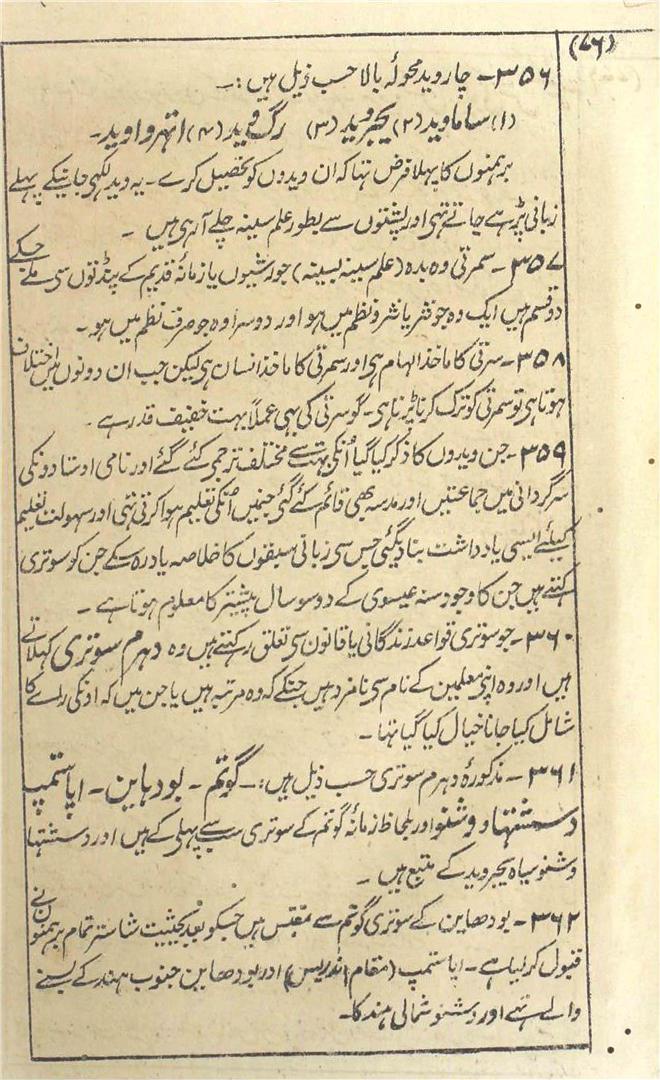 (۷۶)
۳۵۶- چار وید محولۂ بالا حسب ذیل ہیں:۔
(۱) ساماوید (۲) یجروید (۳) رگ وید (۴) اتہرواوید۔
برہمنوں کا پہلا فرض تہا کہ ان ویدوں کو تحصیل کرے۔ یہ وید لکہی جانیکے پہلے
زبانی پڑہے جاتے تہی اور پشتوں سے بطور علم سینہ چلے آرہی ہیں ۔
۳۵۷- سمرتی وہ بدہ (علم سینہ بسینہ) جو رشیوں یا زمانۂ قدیم کے پنڈتوں سی ملے جسکے
دو قسم ہیں ایک وہ جو نثر یا نثر و نظم میں ہو اور دوسرا وہ جو صرف نظم میں ہو۔
۳۵۸- سرتی کا ماخذ الہام ہی اور سمرتی کا ماخذ انسان ہی لیکن جب ان دونوں میں اختلاف
ہوتا ہی تو سمرتی کو ترک کرنا پڑتا ہی۔ گو سرتی کی بہی عملاً بہت خفیف قدر ہے ۔
۳۵۹- جن ویدوں کا ذکر کیا گیا اُنکی بہت سے مختلف ترجمی کئے گئے اور نامی اوستادونکی
سرگردانی میں جماعتیں اور مدرسہ بھی قائم کئے گئی جنمیں اُنکی تعلیم ہوا کرتی تہی اور سہولت تعلیم
کیلئے ایسی یادداشت بنادیگئی جس سی زبانی سبقوں کا خلاصہ یاد رہ سکے جن کو سوتری
کہتے ہیں جن کا وجود سنہ عیسوی کے دو سو سال پیشتر کا معلوم ہوتا ہے ۔
۳۶۰- جو سوتری قواعد زندگانی یا قانون سی تعلق رکہتے ہیں وہ دہرم سوتری کہلاتے
ہیں اور وہ اپنی معلمین کے نام سی نامزد ہیں جنکے کہ وہ مرتبہ ہیں یا جن میں کہ اونکی رائے کا
شامل کیا جانا خیال کیا گیا تہا ۔
۳۶۱- مذکورۂ دہرم سوتری حسب ذیل ہیں:۔ گوتم ۔ بودہاین ۔ اپاستمپ
دسشتہا و وشنو اور بلحاظ زمانہ گوتم کے سوتری سب سے پہلی کے ہیں اور دسشتہا
وشنو سیاہ یجروید کے متبع ہیں ۔
۳۶۲- بودھاین کے سوتری گوتم سے مقتبس ہیں جسکو بعد بحیثیت شاستر تمام برہمنوں نے
قبول کر لیا ہے ۔ اپاستمپ (مقام اندریس) اور بودھاین جنوب ہند کے بسنے
والے تہے اور دشنو شمالی ہند کا۔